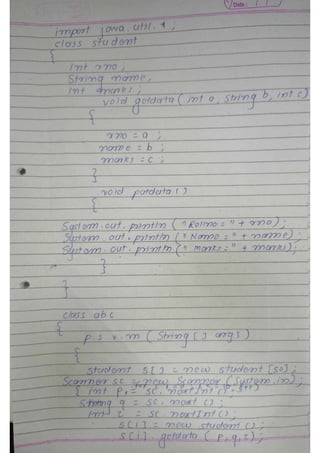 Date: 
import java.util.*;
class student
{
Int rno,
String name,
Int marks;
void getdata ( int a, String b, int c)
{
rno = a ;
name = b ;
marks = c ;
}
void putdata ( )
{
System.out.println (" Rollno = " + rno);
System.out.println (" Name = " + name);
System.out.println (" Marks = " + marks);
}
}
class abc
{
p. s. v. m ( String [ ] args )
{
student s[ ] = new student [50];
Scanner sc = new Scanner (System.in);
{ int p = sc. nextInt ( );
String q = sc. next ( );
int r = sc nextInt ( );
s[i] = new student ( );
s[i]. getdata ( p, q, r);